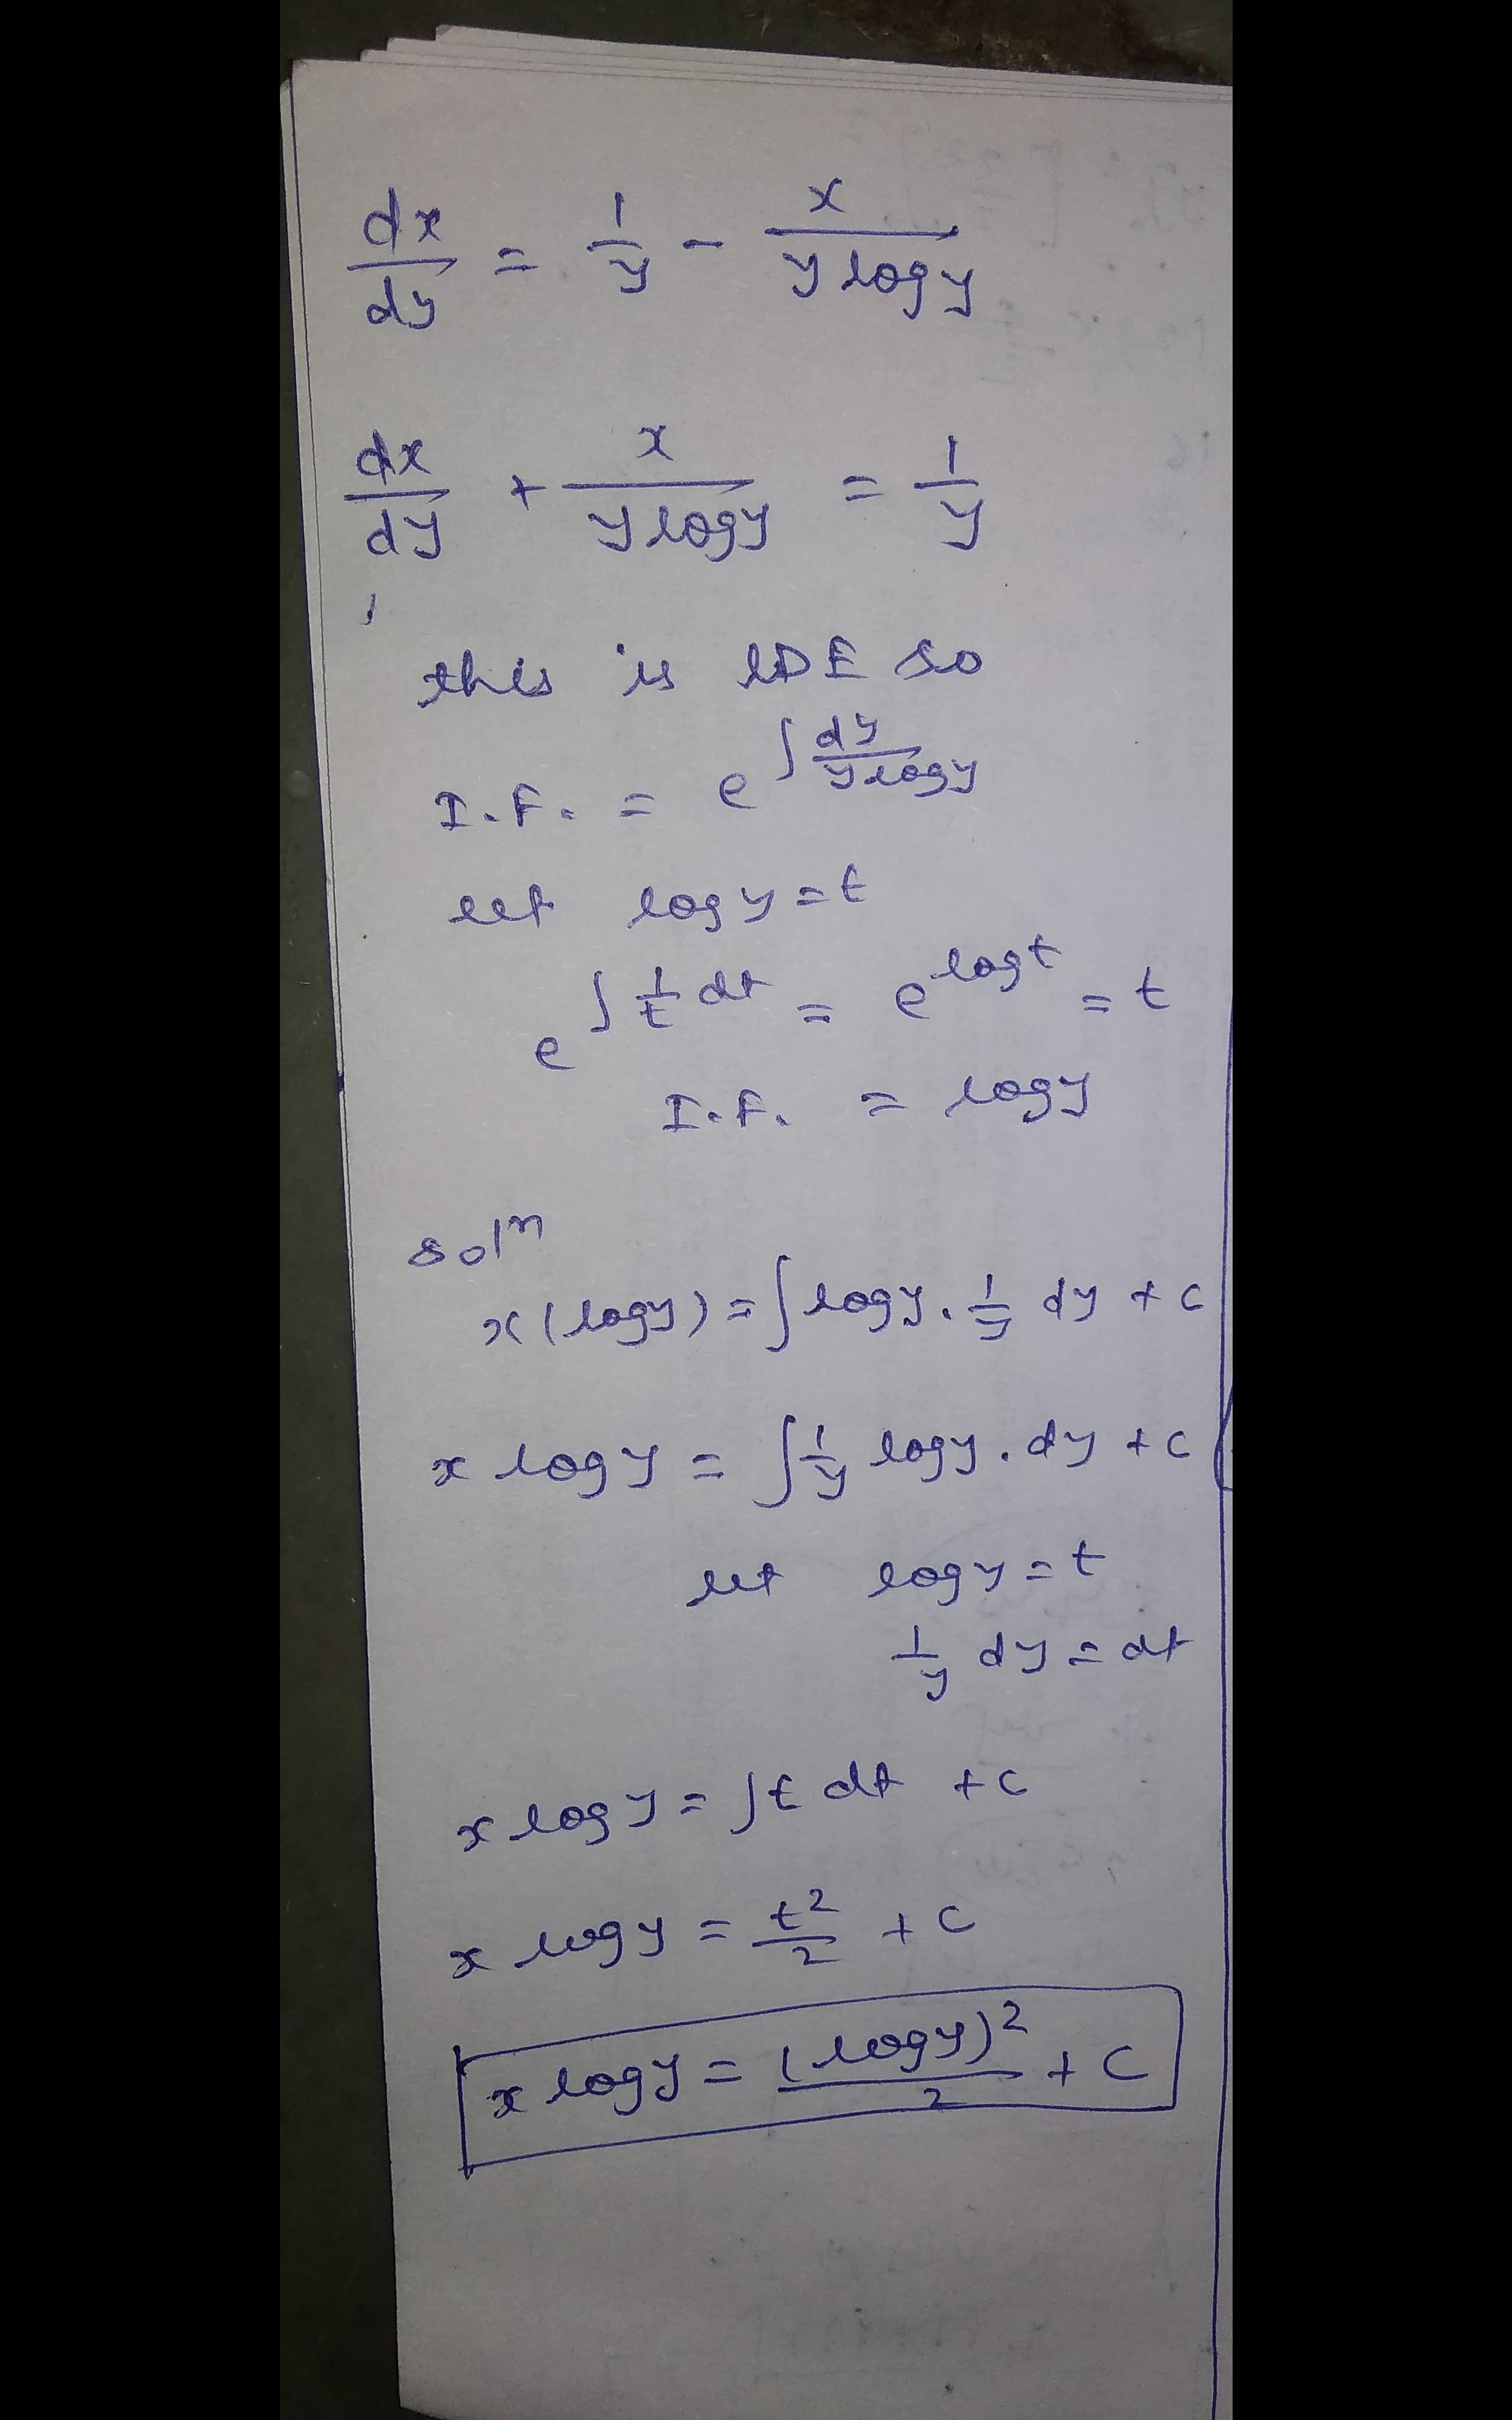 dx/dy = 1/y - x/(y logy)
dx/dy + x/(y logy) = 1/y
this is LDE so
I.F. = e^∫ dy/(y logy)
let logy = t
e^∫ 1/t dt = e^logt = t
I.F. = logy
solⁿ
x(logy) = ∫ logy . 1/y dy + c
x logy = ∫ 1/y logy . dy + c
let logy = t
1/y dy = dt
x logy = ∫ t dt + c
x logy = t²/2 + c
x logy = (logy)²/2 + C